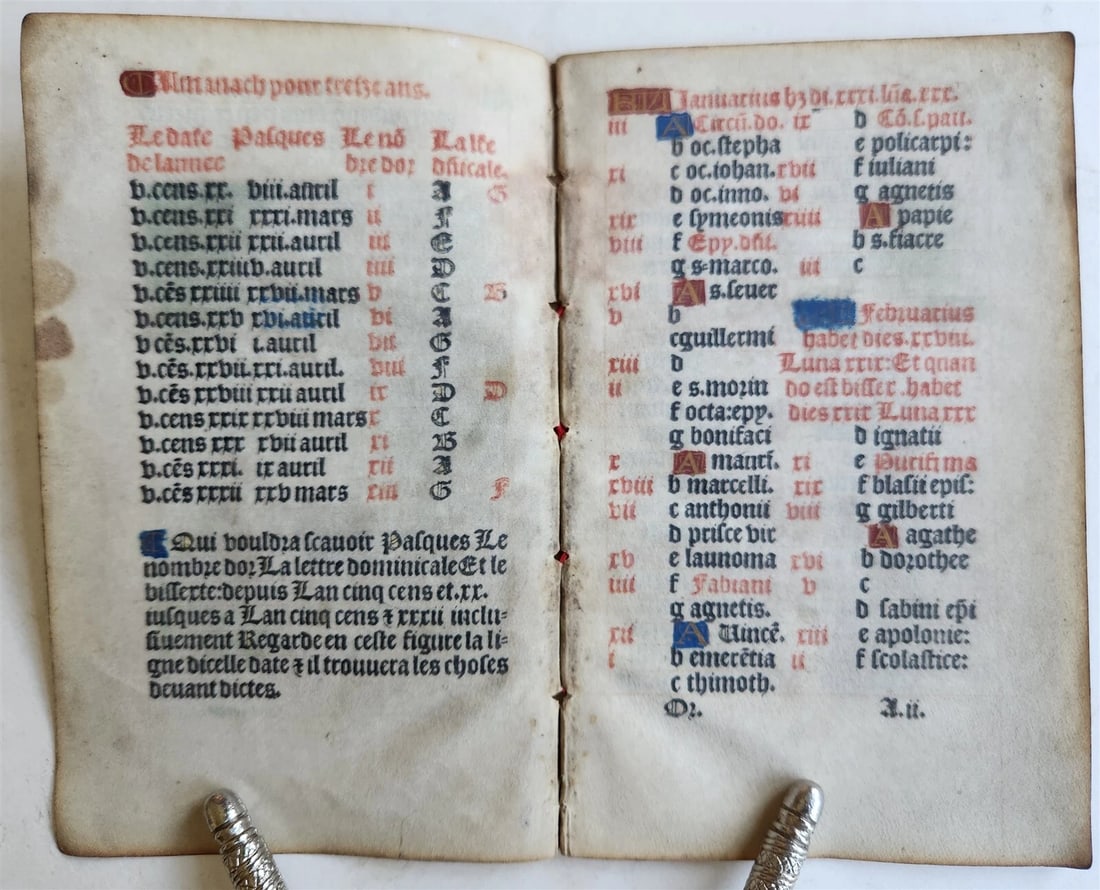 Alm anach pour treize ans.
Le date Pasques Le nō La lr̄e
de lannee bre dor dn̄icale.
v.cens.xx. viii.auril i A G
v.cens.xxi xxxi.mars ii F
v.cens.xxii xx.auril iii E
v.cens.xxiii v.auril iiii D
v.cēs xxiiii xxvii.mars v C B
v.cens.xxv xvi.auril vi A
v cēs.xxvi i.auril vii G
v.cēs.xxvii.xxi.auril. viii F
v.cēs xxviii xxii auril ix D D
v.cens xxix xxviii mars x C
v.cens xxx xvii auril xi B
v.cēs xxxi. ix auril xii A
v.cēs xxxii xxv mars xiii G F
Qui vouldra scauoir Pasques Le
nombre dor La lettre dominicale Et le
bissexte: depuis Lan cinq cens et.xx.
iusques a Lan cinq cens ⁊ xxxii inclu-
siuement Regarde en ceste figure la li-
gne dicelle date ⁊ il trouuera les choses
deuant dictes.
KL Januarius hꝫ di.xxxi.lūa.xxx.
iii A Circū.do.
b oc.stepha
xi c oc.iohan.
d oc.inno.
xix e symeonis
viii f Epy.dn̄i.
g s.marco.
xvi A s.seuer
v b
c guillermi
xiii d
ii e s.morin
f octa:epy.
g bonifaci
x A mauri.
xviii b marcelli.
vii c anthonii
d prisce vir
xv e launoma
iiii f Fabiani
g agnetis.
xii A Uincē.
i b emerētia
c thimoth.
ix d Cō.s.pau.
e policarpi:
xvii f iuliani
vi g agnetis
xiiii A papie
b s.fiacre
iii c
Februarius
habet dies.xxviii.
Luna xxix: Et quan
do est bissex .habet
dies xxix Luna xxx
d ignatii
xi e Purifi ma
xix f blasii epis:
viii g gilberti
A agathe
xvi b dorothee
v c
d sabini ep̄i
xiii e apolonie:
ii f scolastice:
Or. A.ii.